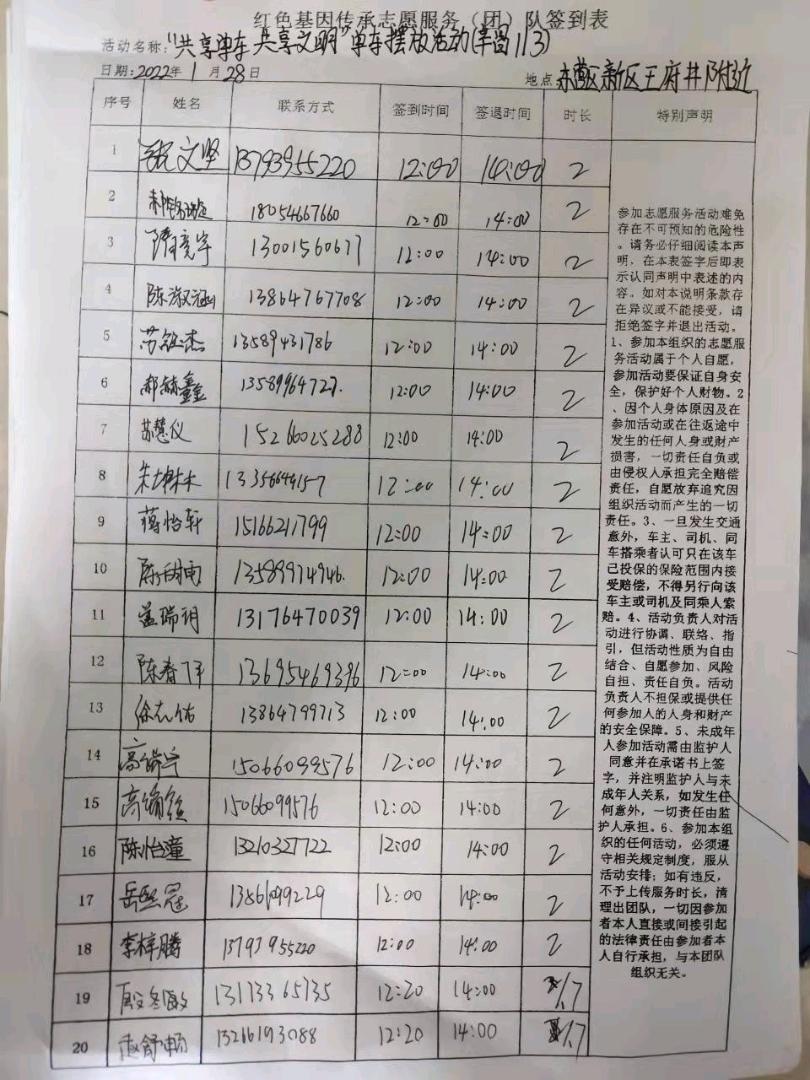 红色基因传承志愿服务（团）队签到表
活动名称："共享单车 共享文明"单车摆放活动(辛留113)
日期：2022年1月28日 地点 东营区新区王府井附近
序号 姓名 联系方式 签到时间 签退时间 时长 特别声明
1 文坚 13793955220 12:00 14:00 2
2 18054667660 12:00 14:00 2
3 隋亮宇 13001560677 12:00 14:00 2
4 陈淑涵 13864767708 12:00 14:00 2
5 苏钰杰 13589431786 12:00 14:00 2
6 郝赫鑫 13589964727. 12:00 14:00 2
7 苏慧仪 15266025288 12:00 14:00 2
8 12:00 14:00 2
9 蒋怡轩 15166211799 12:00 14:00 2
10 13589974946. 12:00 14:00 2
11 盖瑞玥 13176470039 12:00 14:00 2
12 陈春 13695469396 12:00 14:00 2
13 徐志佑 13864799713 12:00 14:00 2
14 高 15066099576 12:00 14:00 2
15 高 15066099576 12:00 14:00 2
16 陈怡潼 13210327722 12:00 14:00 2
17 岳熙冠 12:00 14:00 2
18 李梓腾 13793955220 12:00 14:00 2
19 13173365735 12:20 14:00 1.7
20 赵舒畅 13266193088 12:20 14:00 1.7
参加志愿服务活动难免
存在不可预知的危险性
。请务必仔细阅读本声
明，在本表签字后即表
示认同声明中表述的内
容。如对本说明条款存
在异议或不能接受，请
拒绝签字并退出活动。
1、参加本组织的志愿服
务活动属于个人自愿，
参加活动要保证自身安
全，保护好个人财物。2
、因个人身体原因及在
参加活动或在往返途中
发生的任何人身或财产
损害，一切责任自负或
由侵权人承担完全赔偿
责任，自愿放弃追究因
组织活动而产生的一切
责任。3、一旦发生交通
意外，车主、司机、同
车搭乘者认可只在该车
已投保的保险范围内接
受赔偿，不得另行向该
车主或司机及同乘人索
赔。4、活动负责人对活
动进行协调、联络、指
引，但活动性质为自由
结合、自愿参加、风险
自担、责任自负。活动
负责人不担保或提供任
何参加人的人身和财产
的安全保障。5、未成年
人参加活动需由监护人
同意并在承诺书上签
字，并注明监护人与未
成年人关系，如发生任
何意外，一切责任由监
护人承担。6、参加本组
织的任何活动，必须遵
守相关规定制度，服从
活动安排；如有违反，
不予上传服务时长，清
理出团队，一切因参加
者本人直接或间接引起
的法律责任由参加者本
人自行承担，与本团队
组织无关。